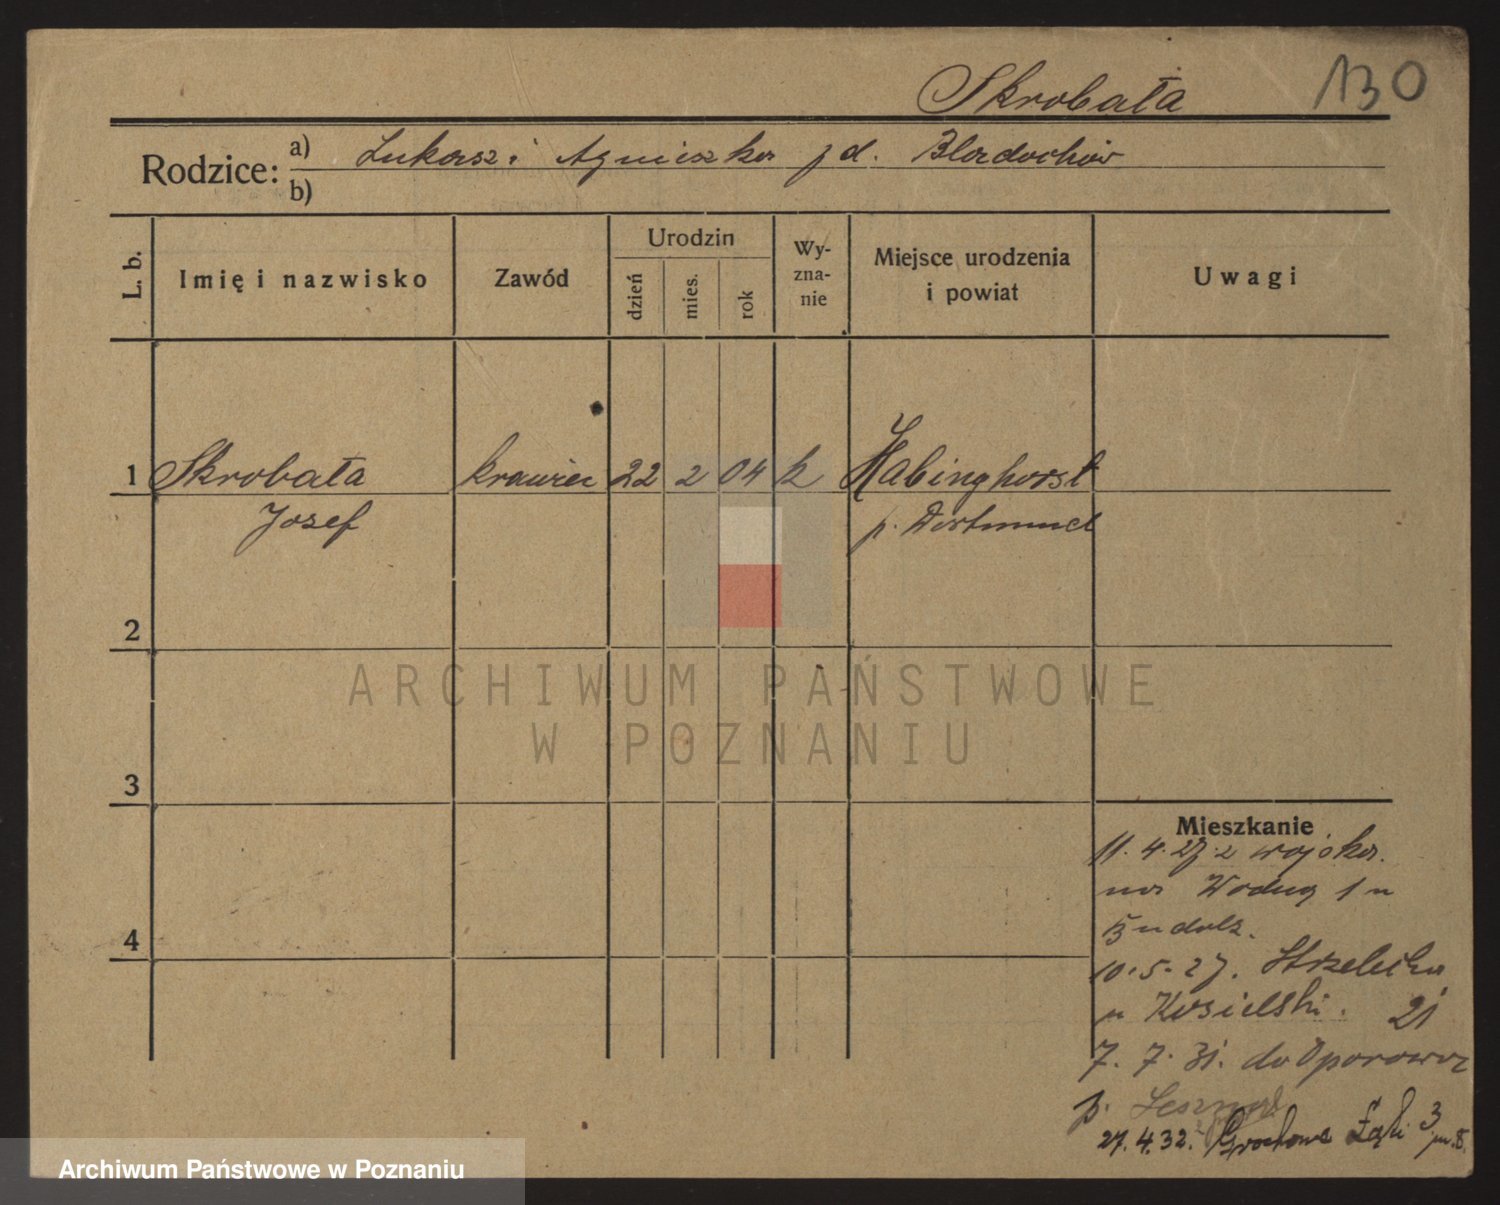 Skrobała 130
Rodzice: a) Łukasz i Agnieszka zd.
b)
L. b. Imię i nazwisko Zawód Urodzin dzień mies. rok Wy-zna-nie Miejsce urodzenia i powiat Uwagi
1 Skrobała krawiec 22 2 04 k Habinghorst
Józef p. Dortmund
2
ARCHIWUM PAŃSTWOWE
W POZNANIU
3
Mieszkanie
11.4.27 z wojska
na Wodną 1 u
4
10.5.27. Strzelecka
u Kosielski. 21
7.7.31. do Oporowa
p. Leszno
27.4.32. Grochowe Łąki 3 m.8.
Archiwum Państwowe w Poznaniu